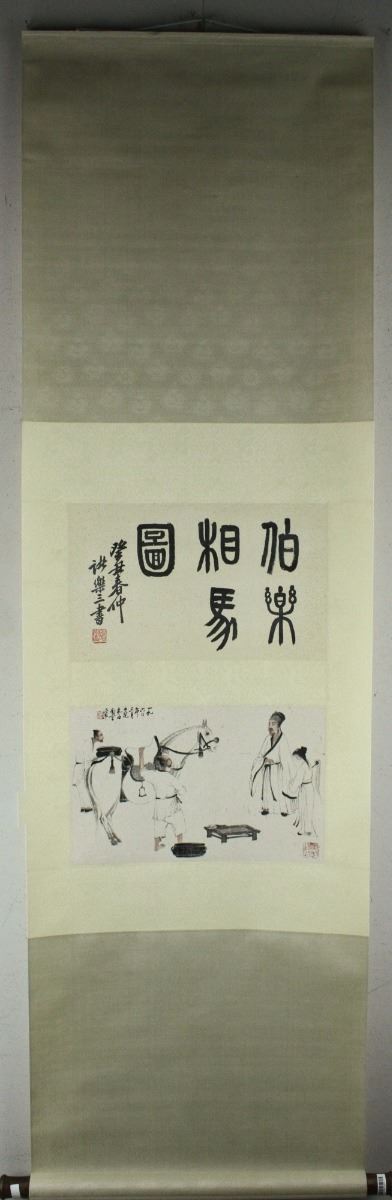 伯樂
相馬
圖
癸丑春仲
諸樂三書